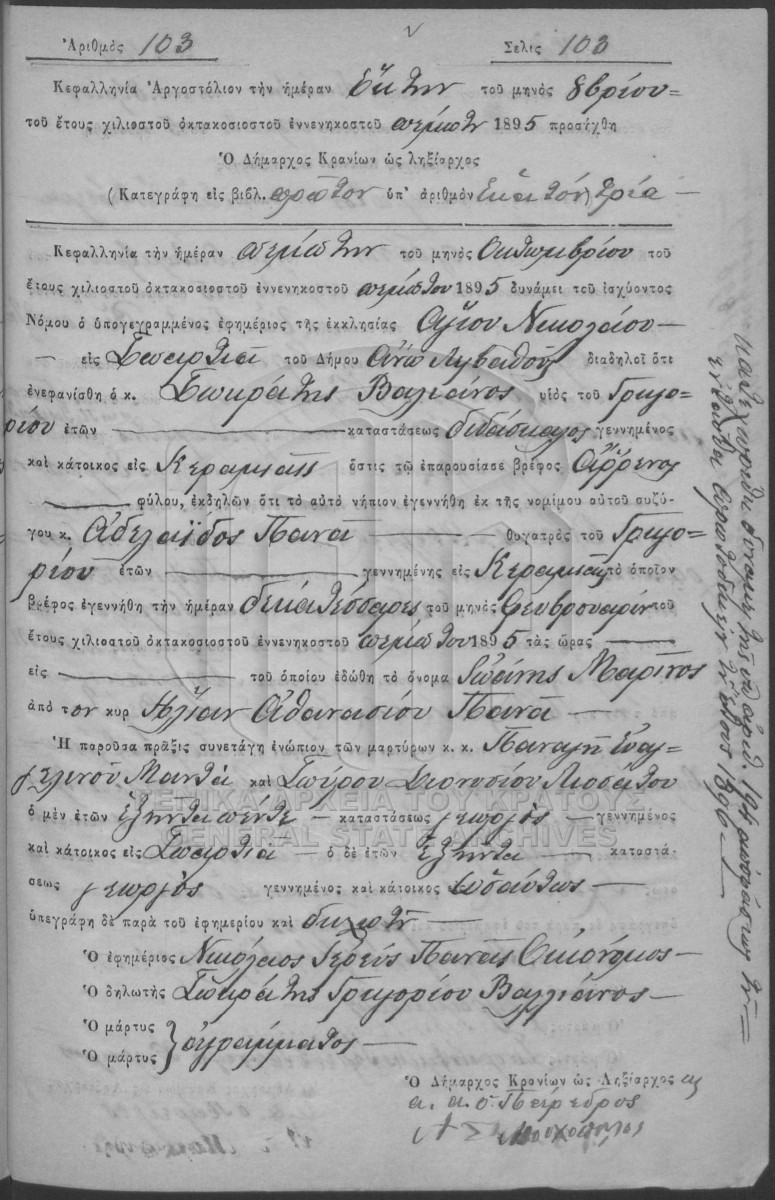 Ἀριθμὸς 103
Σελὶς 103
Κεφαλληνία Ἀργοστόλιον τὴν ἡμέραν Ἕκτην τοῦ μηνὸς 8βρίου=
τοῦ ἔτους χιλιοστοῦ ὀκτακοσιοστοῦ ἐννενηκοστοῦ πέμπτου 1895 προσήχθη
Ὁ Δήμαρχος Κρανίων ὡς ληξίαρχος
(Κατεγράφη εἰς βιβλ. πρῶτον ὑπ' ἀριθμὸν Ἑκατόν) τρία —
Κεφαλληνία τὴν ἡμέραν πέμπτην τοῦ μηνὸς Ὀκτωμβρίου τοῦ
ἔτους χιλιοστοῦ ὀκτακοσιοστοῦ ἐννενηκοστοῦ πέμπτου 1895 δυνάμει τοῦ ἰσχύοντος
Νόμου ὁ ὑπογεγραμμένος ἐφημέριος τῆς ἐκκλησίας Ἁγίου Νικολάου —
— εἰς τοῦ Δήμου Ἄνω Λειβαθοῦς διαδηλοῖ ὅτι
ἐνεφανίσθη ὁ κ. Σωκράτης Βαλιάνος υἱὸς τοῦ Γρηγο=
ρίου ἐτῶν — καταστάσεως διδάσκαλος γεννημένος
καὶ κάτοικος εἰς Κεραμιᾶς ὅστις τῷ ἐπαρουσίασε βρέφος ἄῤῥενος
— φύλου, ἐκδηλῶν ὅτι τὸ αὐτὸ νήπιον ἐγεννήθη ἐκ τῆς νομίμου αὐτοῦ συζύ-
γου κ. Ἀδελαΐδος Πανᾶ — θυγατρὸς τοῦ Γρηγο=
ρίου ἐτῶν — γεννημένης εἰς Κεραμιᾶς τὸ ὁποῖον
βρέφος ἐγεννήθη τὴν ἡμέραν δεκατέσσαρες τοῦ μηνὸς Φευβρουαρίου τοῦ
ἔτους χιλιοστοῦ ὀκτακοσιοστοῦ ἐννενηκοστοῦ πέμπτου 1895 τὰς ὥρας —
εἰς — τοῦ ὁποίου ἐδώθη τὸ ὄνομα Ἰωάνης Μαρῖνος
ἀπὸ τὸν κυρ Ἠλίαν Ἀθανασίου Πανᾶ —
Ἡ παροῦσα πρᾶξις συνετάγη ἐνώπιον τῶν μαρτύρων κ. κ. Παναγῆ Εὐαγ-
γελινοῦ Μαντᾶ καὶ Σπύρου Διονυσίου
ὁ μὲν ἐτῶν ἑξῆντα πέντε — καταστάσεως γεωργὸς — γεννημένος
καὶ κάτοικος εἰς — ὁ δὲ ἐτῶν ἑξῆντα — καταστά-
σεως γεωργὸς γεννημένος καὶ κάτοικος ὡσαύτως —
ὑπεγράφη δὲ παρὰ τοῦ ἐφημερίου καὶ δηλωτῆ —
Ὁ ἐφημέριος Νικόλαος Ἱερεὺς Πανᾶς Οἰκονόμος —
Ὁ δηλωτὴς Σωκράτης Γρηγορίου Βαλλιάνος —
Ὁ μάρτυς
Ὁ μάρτυς } ἀγράμματος —
Ὁ Δήμαρχος Κρανίων ὡς Ληξίαρχος
ὁ Πάρεδρος
ΓΕΝΙΚΑ ΑΡΧΕΙΑ ΤΟΥ ΚΡΑΤΟΥΣ
GENERAL STATE ARCHIVES